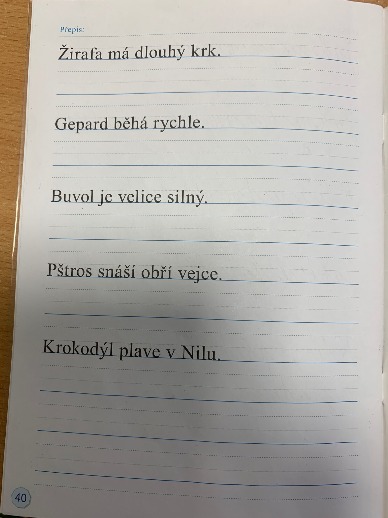 Přepis:
Žirafa má dlouhý krk.
Gepard běhá rychle.
Buvol je velice silný.
Pštros snáší obří vejce.
Krokodýl plave v Nilu.
40